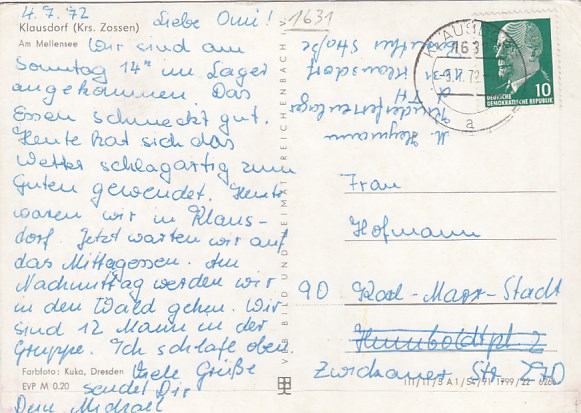 4.7.72
Liebe Omi!
1631
Klausdorf (Krs. Zossen)
Am Mellensee
Wir sind am
Sonntag 14ʰ im Lager
angekommen. Das
Essen schmeckt gut.
Heute hat sich das
Wetter schlagartig zum
Guten gewendet. Heute
waren wir in Klaus-
dorf. Jetzt warten wir auf
das Mittagessen. Am
Nachmittag werden wir
in den Wald gehen. Wir
sind 12 Mann in der
Gruppe. Ich schlafe oben
Farbfoto: Kuka, Dresden
EVP M 0.20
Viele Grüße
sendet Dir
Dein Michael
VEB BILD UND HEIMAT REICHENBACH
M. Heymann
Kinderferienlager
Klausdorf
Straße
163
72
a
DEUTSCHE
DEMOKRATISCHE REPUBLIK
10
Frau
Hofmann
90 Karl-Marx-Stadt
Humboldtpl. 2
Zwickauer Str. 270